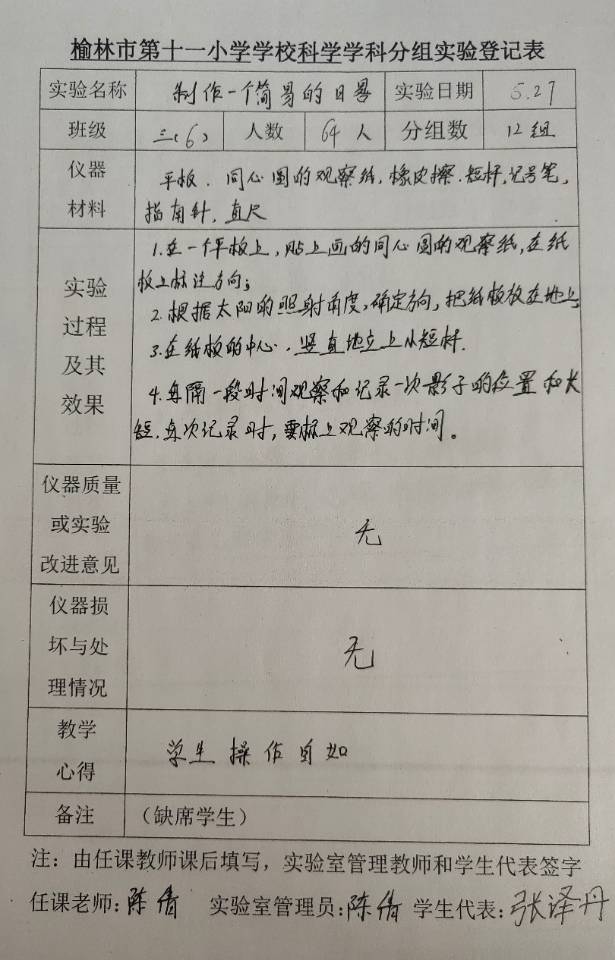 榆林市第十一小学学校科学学科分组实验登记表
实验名称 制作一个简易的日晷 实验日期 5.27
班级 三(6) 人数 64人 分组数 12组
仪器材料 平板、同心圆的观察纸,橡皮擦.短杆,记号笔,
指南针,直尺
实验过程及其效果 1.在一个平板上,贴上画的同心圆的观察纸,在纸
板上标注方向;
2.根据太阳的照射角度,确定方向,把纸板放在地上
3.在纸板的中心,竖直地立上从短杆.
4.每隔一段时间观察和记录一次影子的位置和长
短.每次记录时,要标上观察的时间。
仪器质量或实验改进意见 无
仪器损坏与处理情况 无
教学心得 学生操作自如
备注 (缺席学生)
注:由任课教师课后填写,实验室管理教师和学生代表签字
任课老师:陈倩 实验室管理员:陈倩 学生代表:张泽丹